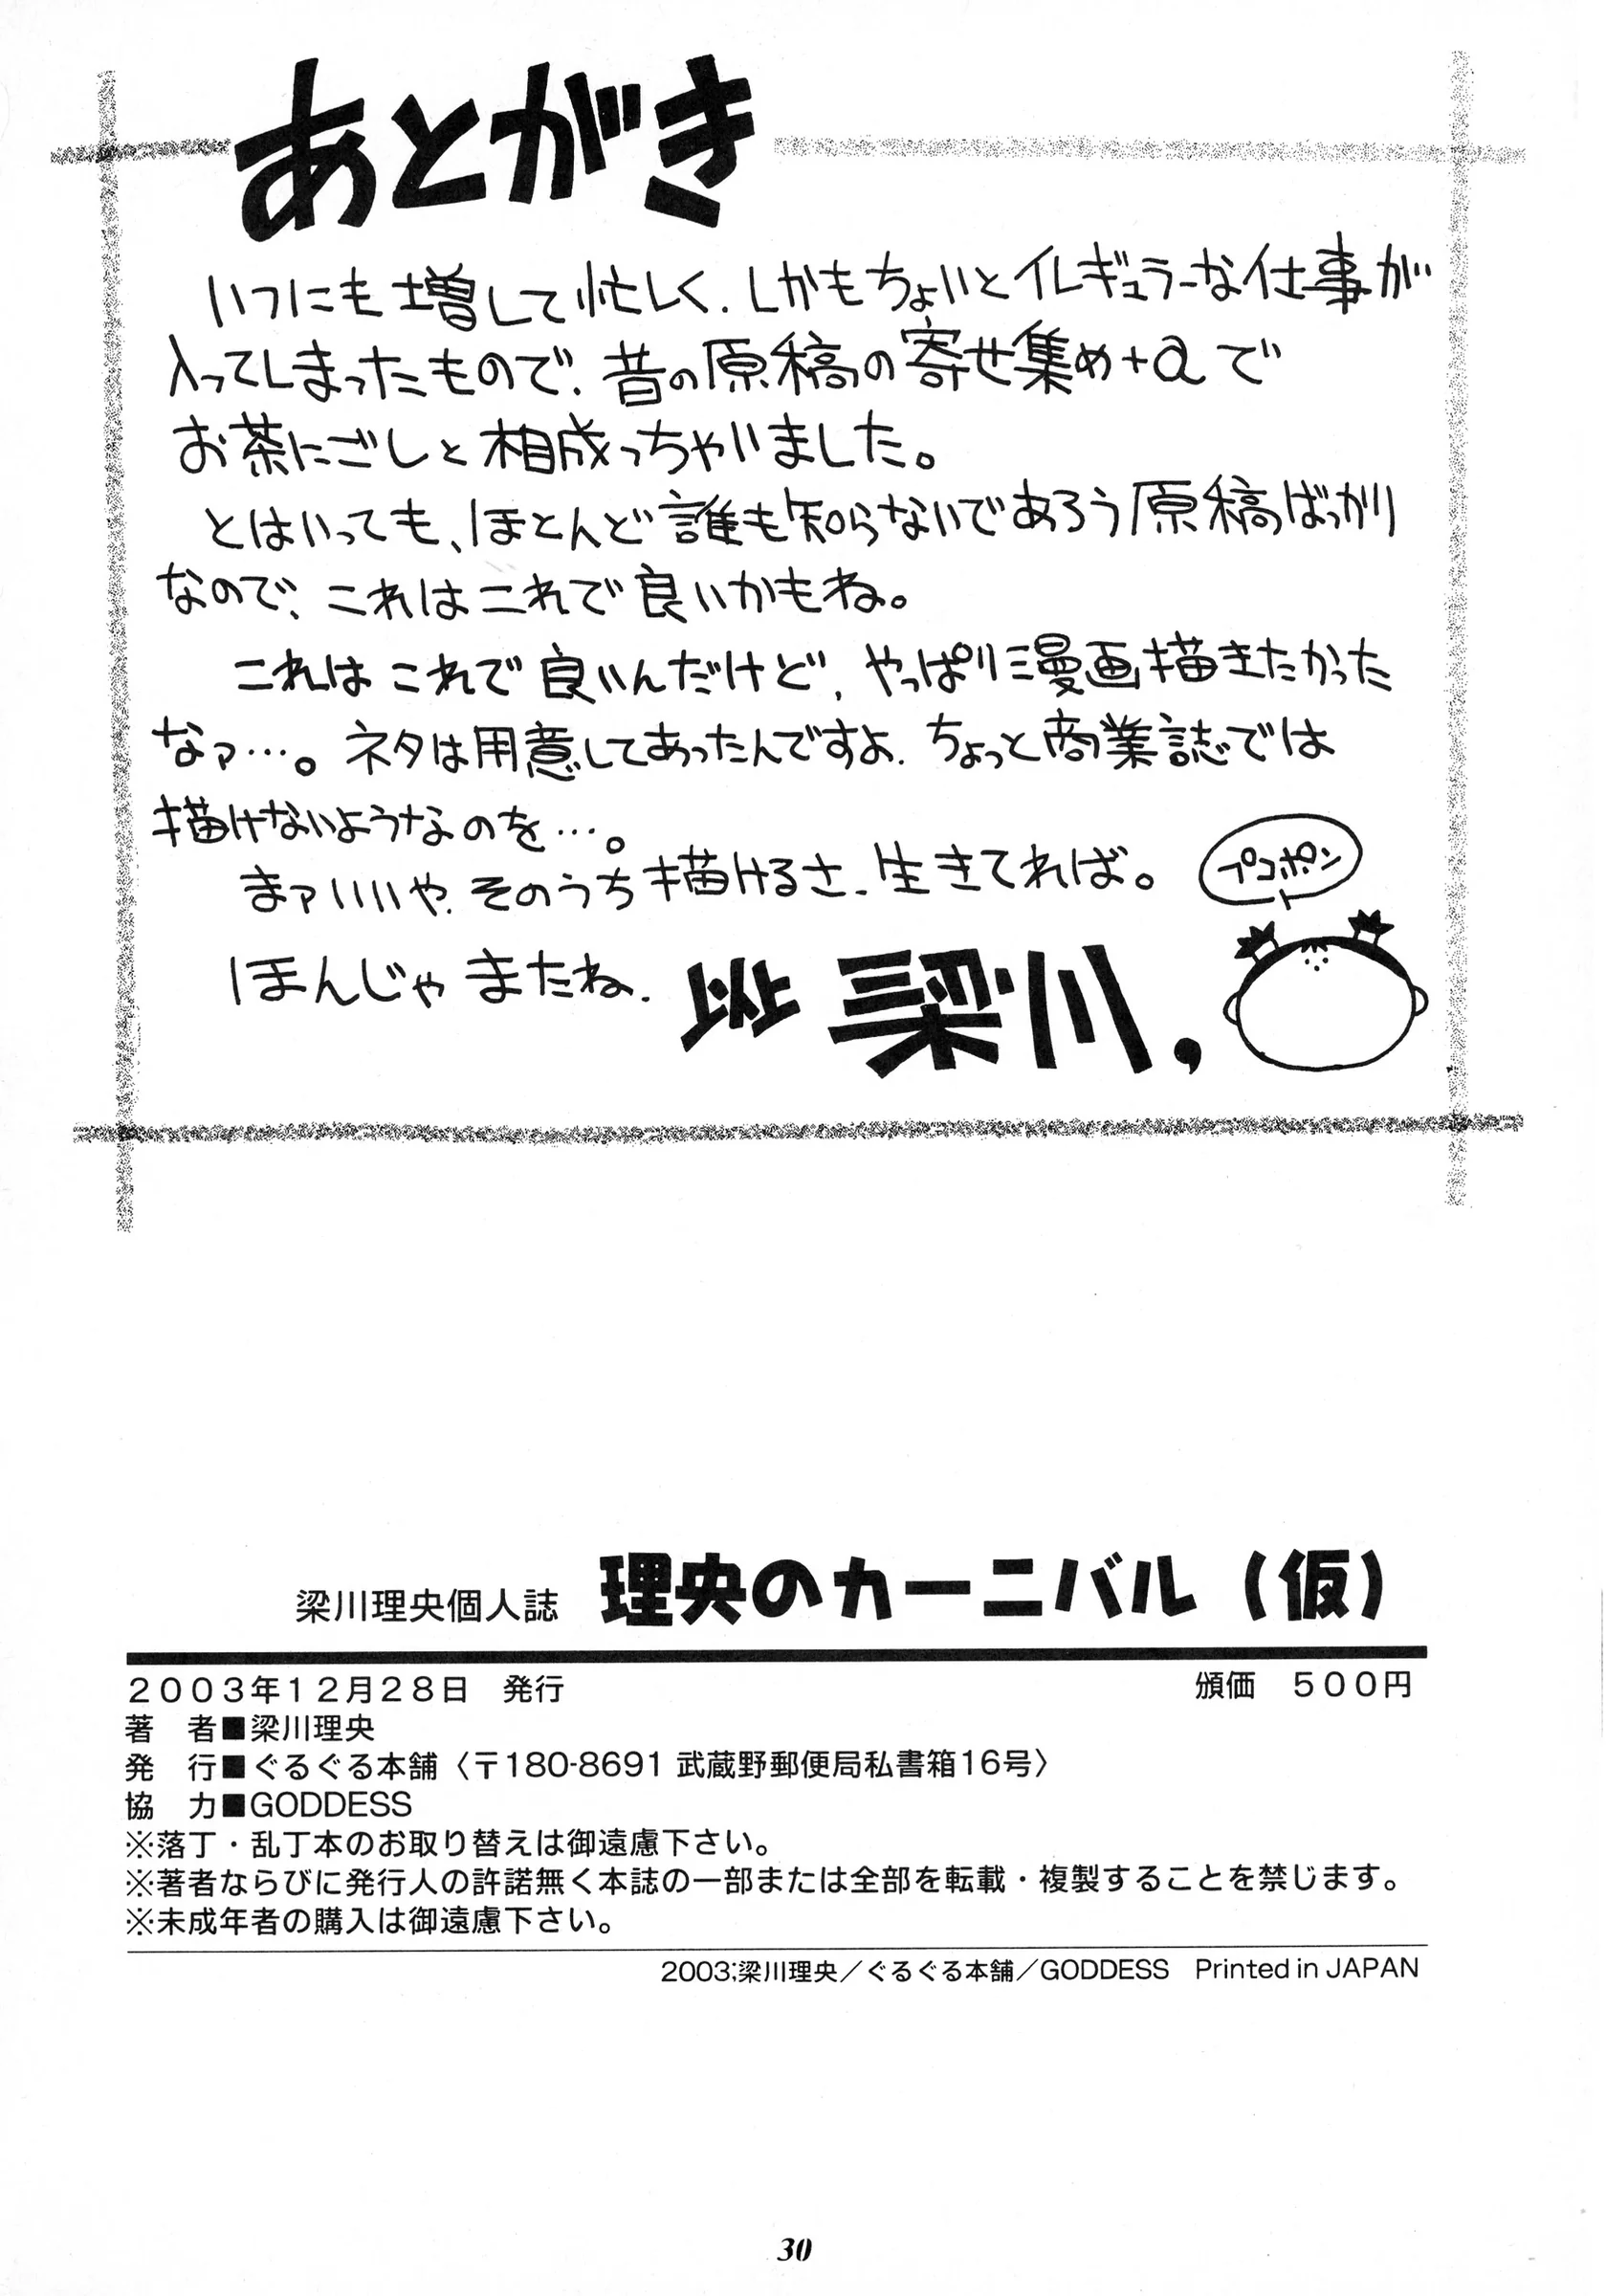 あとがき
いつにも増して忙しく、しかもちょいとイレギュラーな仕事が
入ってしまったもので、昔の原稿の寄せ集め+αで
お茶にごしと相成っちゃいました。
とはいっても、ほとんど誰も知らないであろう原稿ばっかり
なので、これはこれで良いかもね。
これはこれで良いんだけど、やっぱり漫画描きたかった
なァ…。ネタは用意してあったんですよ、ちょっと商業誌では
描けないようなのを…。
まァいいや、そのうち描けるさ、生きてれば。
プコポン
ほんじゃまたね、以上 梁川,
梁川理央個人誌 理央のカーニバル（仮）
２００３年１２月２８日　発行　頒価　５００円
著　者■梁川理央
発　行■ぐるぐる本舗〈〒180-8691 武蔵野郵便局私書箱16号〉
協　力■GODDESS
※落丁・乱丁本のお取り替えは御遠慮下さい。
※著者ならびに発行人の許諾無く本誌の一部または全部を転載・複製することを禁じます。
※未成年者の購入は御遠慮下さい。
2003;梁川理央／ぐるぐる本舗／GODDESS　Printed in JAPAN
30